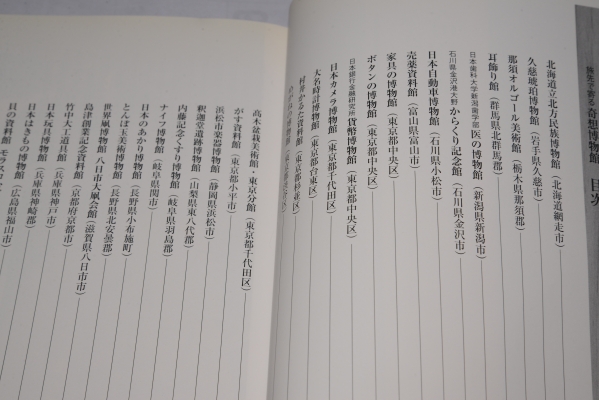 旅先で寄る 奇想博物館 目次
北海道立北方民族博物館(北海道網走市)
久慈琥珀博物館(岩手県久慈市)
那須オルゴール美術館(栃木県那須郡)
耳飾り館(群馬県北群馬郡)
日本歯科大学新潟歯学部 医の博物館(新潟県新潟市)
石川県金沢港大野 からくり記念館(石川県金沢市)
日本自動車博物館(石川県小松市)
売薬資料館(富山県富山市)
家具の博物館(東京都中央区)
ボタンの博物館(東京都中央区)
日本銀行金融研究所 貨幣博物館(東京都中央区)
日本カメラ博物館(東京都千代田区)
大名時計博物館(東京都台東区)
村井かるた資料館(東京都杉並区)
高木盆栽美術館・東京分館(東京都千代田区)
がす資料館(東京都小平市)
浜松市楽器博物館(静岡県浜松市)
釈迦堂遺跡博物館(山梨県東八代郡)
内藤記念くすり博物館(岐阜県羽島郡)
ナイフ博物館(岐阜県関市)
日本のあかり博物館(長野県小布施町)
とんぼ玉美術博物館(長野県北安曇郡)
世界凧博物館 八日市大凧会館(滋賀県八日市市)
島津創業記念資料館(京都府京都市)
竹中大工道具館(兵庫県神戸市)
日本玩具博物館(兵庫県神崎郡)
日本はきもの博物館(広島県福山市)
貝の資料館 モラスコ